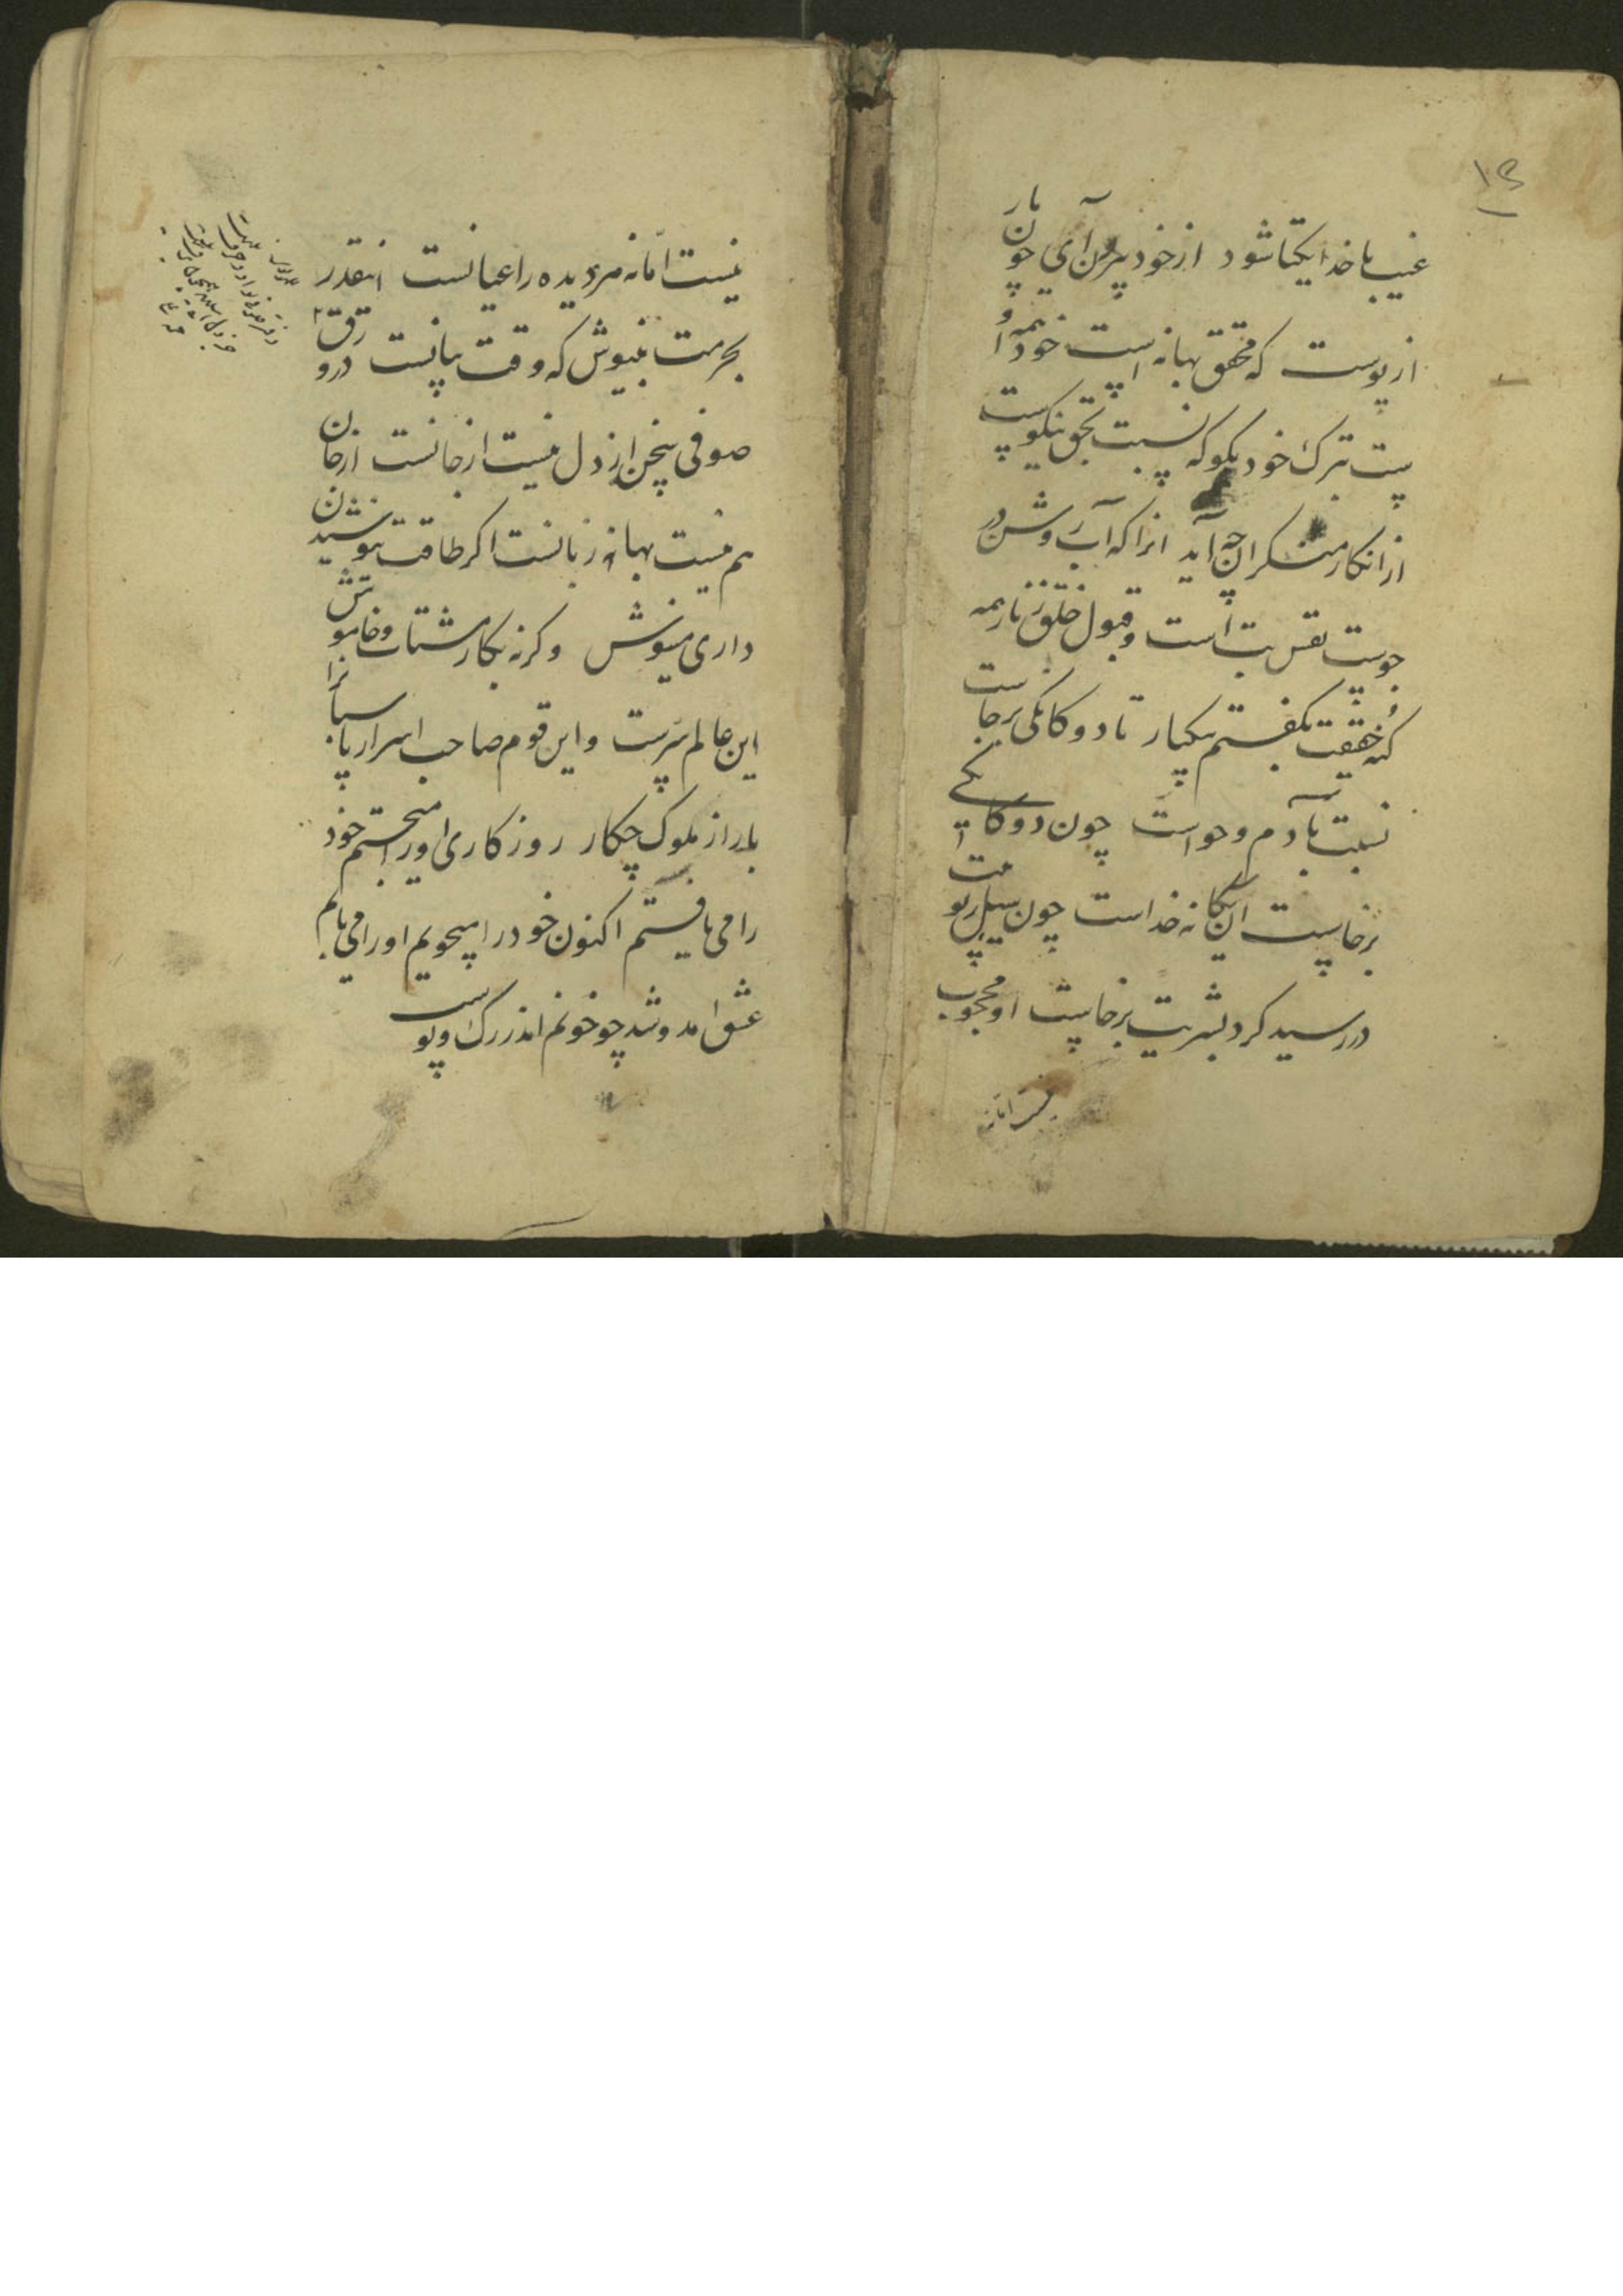 ۱۳
غیب با خدا یکتا شود از خود برون آی چون مار
از پوست که محقق بهانه است خود همه او
ست بترک خود بگو که نسبت بحق نیکوست
از انکار منکران چه آید انرا که آب روشن در
جوست نفس بت است و قبول خلق زنار همه
کنه حقیقت بگفتم بیکبار تا دوکانکی برجاست
نسبت بآدم و حواست چون دوکانکی
برخاست ان یکانه خداست چون سیل ربوبیت
در رسید کرد بشریت برخاست او محجوب
نیست امانه
نیست امانه مر دیده را عیانست انقدر
بحرمت بنیوش که وقت بیانست درو رق
صوفی سخن از دل نیست از جانست از جان
هم نیست بهانه زبانست اکر طاقت نوشیدن
داری مینوش وکرنه بکار مشتاب و خاموش
این عالم سرست و این قوم صاحب اسرار پاسبانرا
بار از ملوک چکار روزکاری اورا میجستم خود
را می یافتم اکنون خود را میجویم اورا می یابم
عشق امد و شد چو خونم اندر رک و پوست